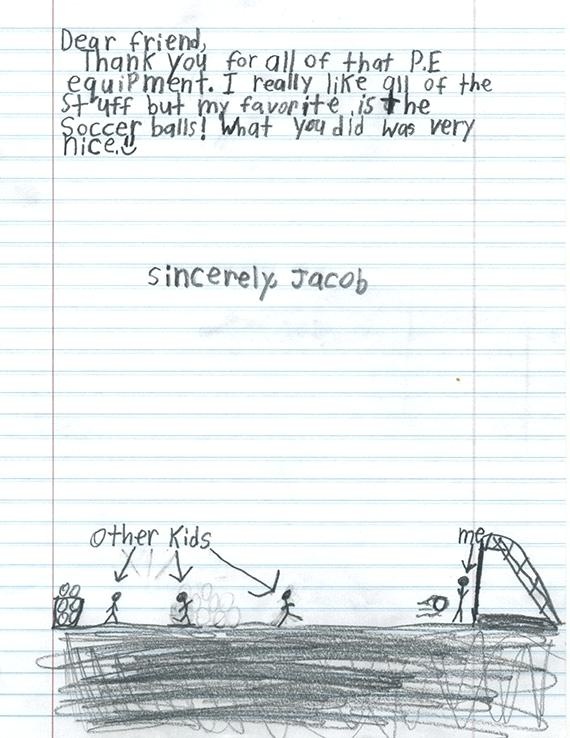 Dear friend,
Thank you for all of that P.E
equipment. I really like all of the
stuff but my favorite is the
Soccer balls! What you did was very
nice.
sincerely, Jacob
Other Kids
me